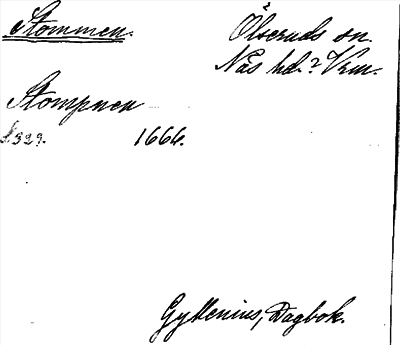 Stommen.
Ölseruds sn.
Näs hd.? Vrm.
Stompnen
s. 329. 1666.
Gyllenius, Dagbok.